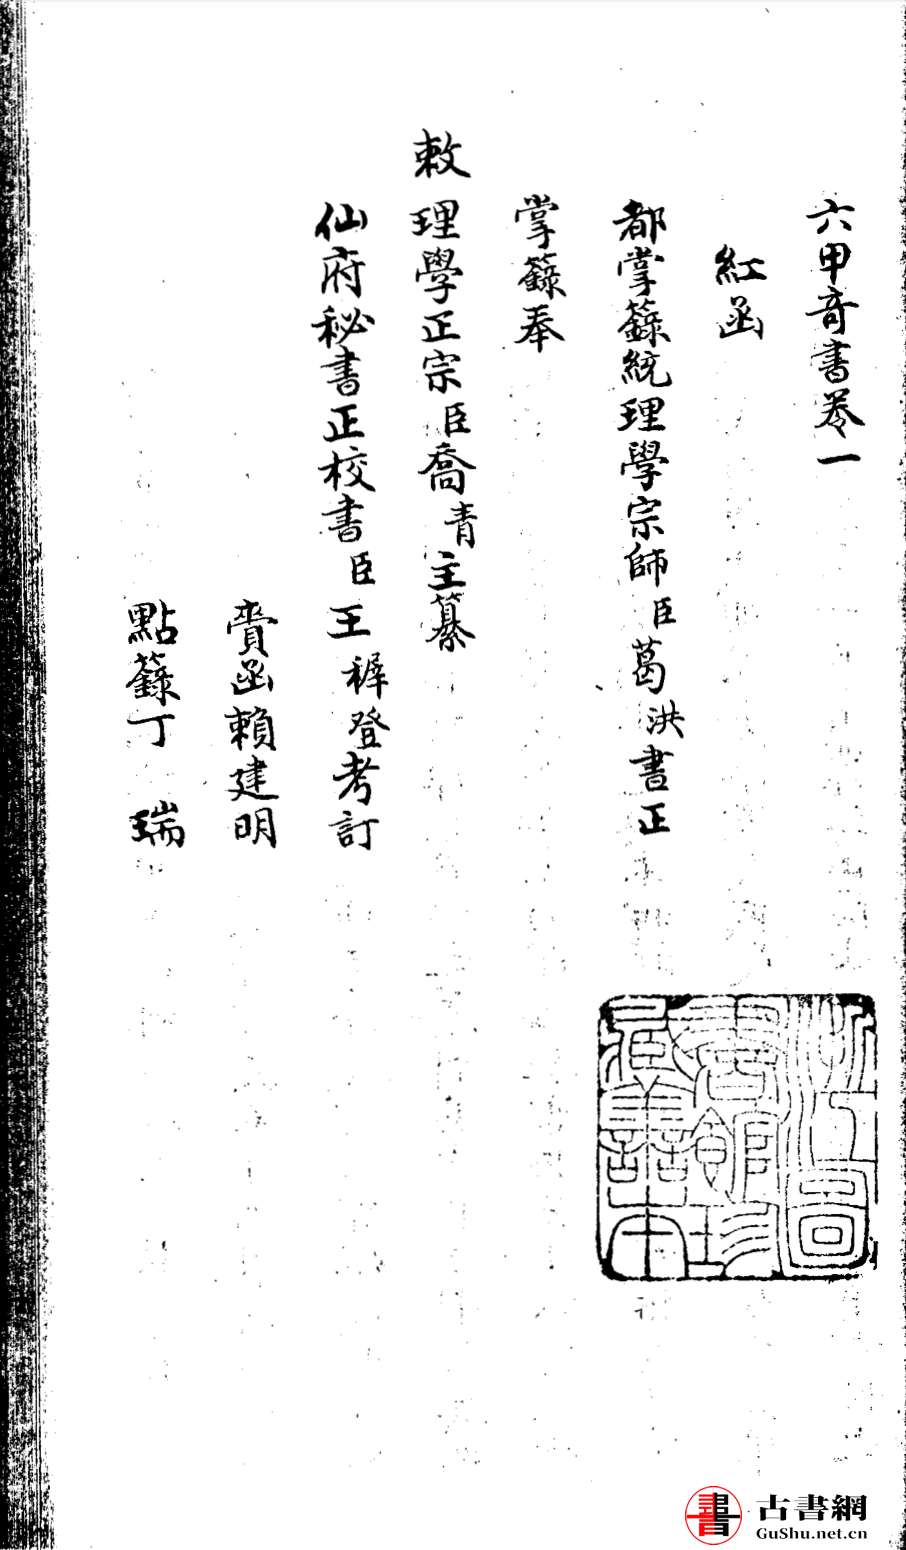 六甲奇書卷一
紅函
都掌籙統理學宗師臣葛洪書正
掌籙奉
敕理學正宗臣喬青主纂
仙府秘書正校書臣王穉登考訂
賫函賴建明
點籙丁瑞
浙江圖
書館珍
藏善本
古書網
GuShu.net.cn